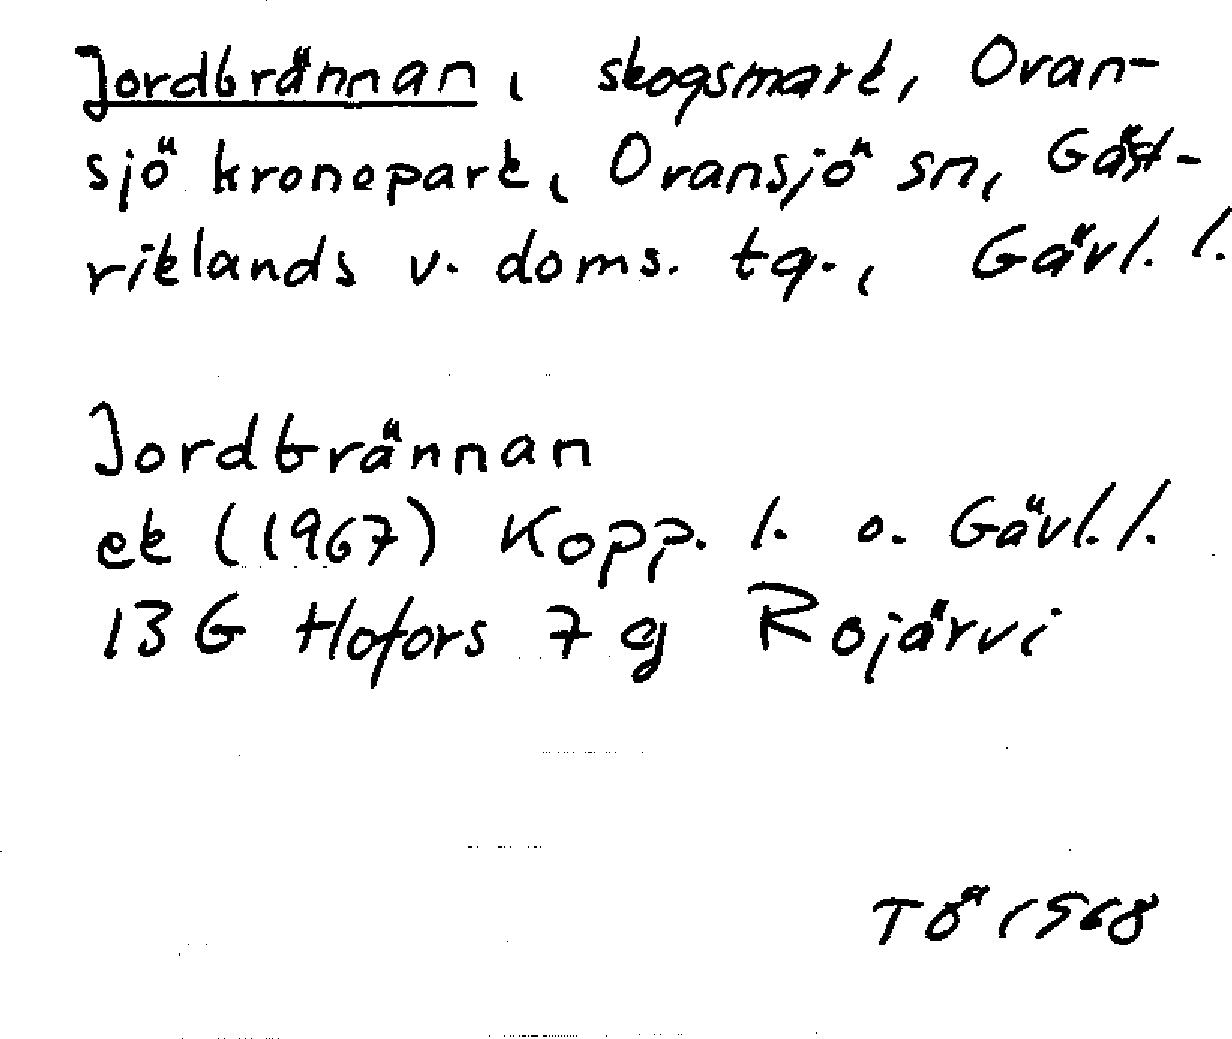 Jordbrännan, skogsmark, Ovan-
sjö kronopark, Ovansjö sn, Gäst-
riklands v. doms. tg., Gävl. l.
Jordbrännan
ek (1967) Kopp. l. o. Gävl. l.
13 G Hofors 7 g Rojärvi
TÖ 1968